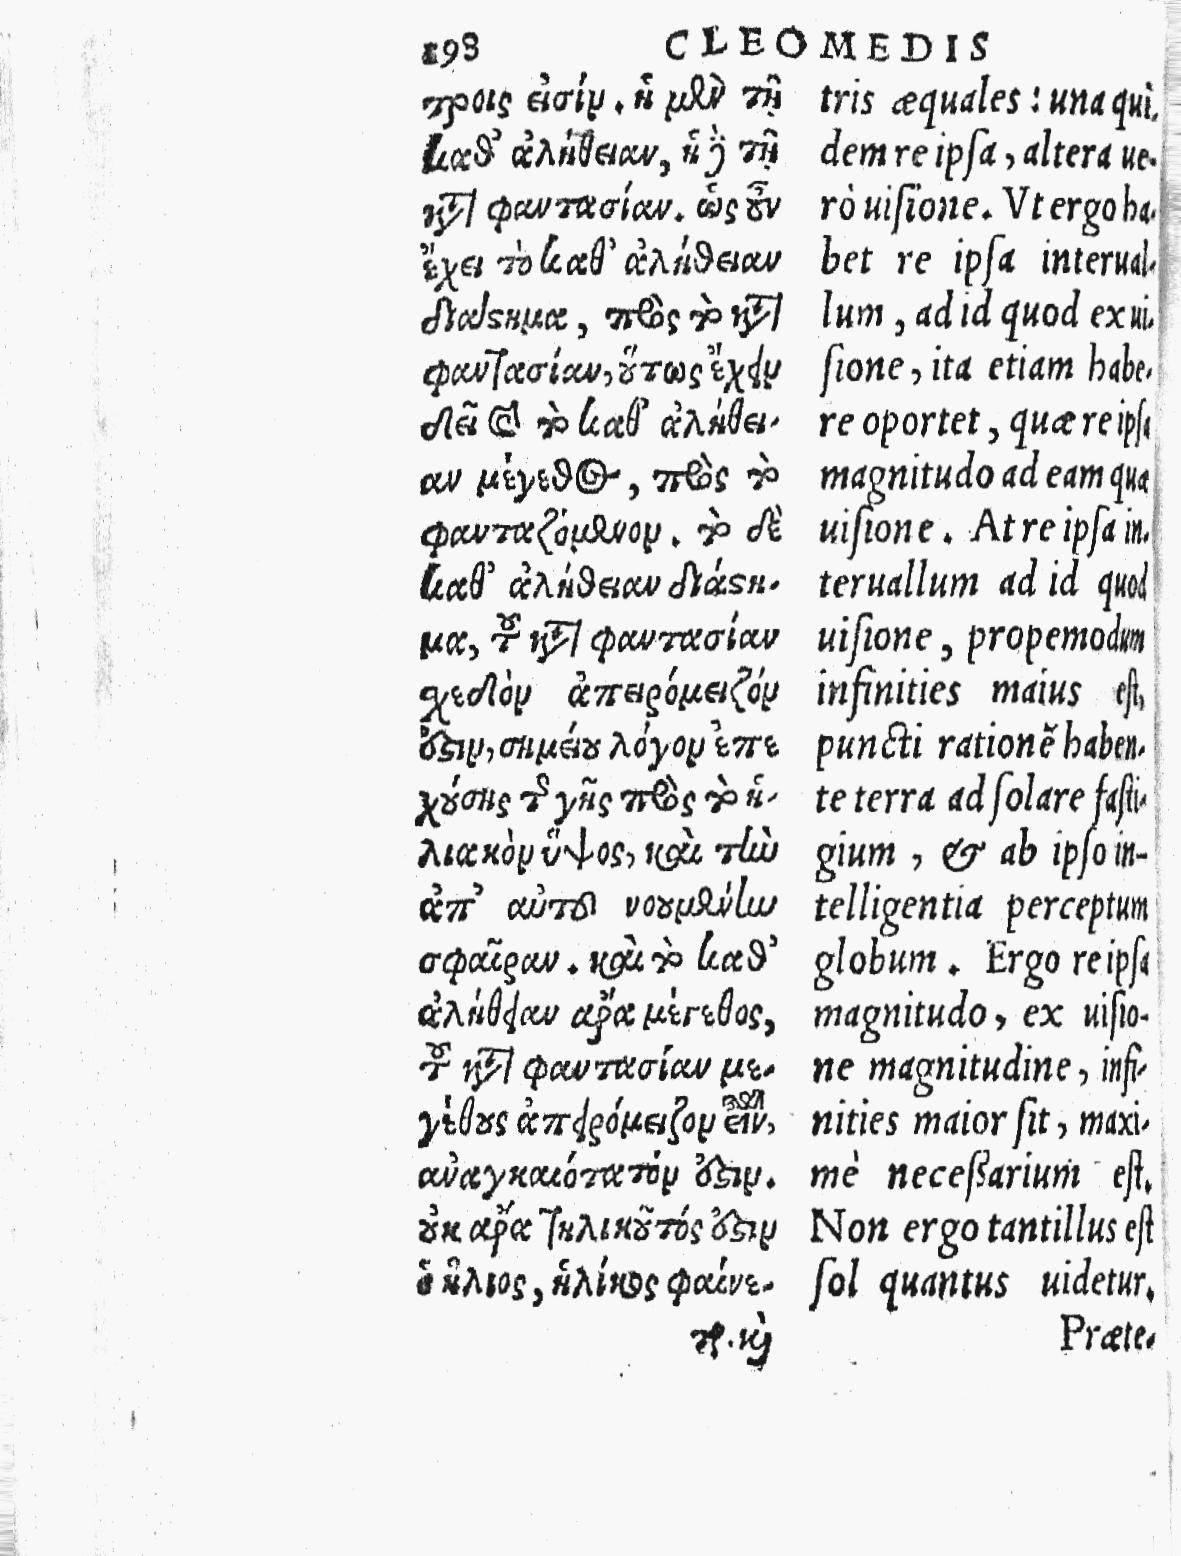 198 CLEOMEDIS
τροις εἰσίν. ἡ μὲν τῇ
καθ’ ἀλήθειαν, ἡ δὲ τῇ
κατὰ φαντασίαν. ὡς οὖν
ἔχει τὸ καθ’ ἀλήθειαν
διάστημα, πρὸς τὸ κατὰ
φαντασίαν, οὕτως ἔχειν
δεῖ καὶ τὸ καθ’ ἀλήθει-
αν μέγεθος, πρὸς τὸ
φανταζόμενον. τὸ δὲ
καθ’ ἀλήθειαν διάστη-
μα, τοῦ κατὰ φαντασίαν
σχεδὸν ἀπειρόμειζόν
ἐστιν, σημείου λόγον ἐπε
χούσης τῆς γῆς πρὸς τὸ ἡ-
λιακὸν ὕψος, καὶ τὴν
ἀπ’ αὐτοῦ νοουμένην
σφαῖραν. καὶ τὸ καθ’
ἀλήθειαν ἄρα μέγεθος,
τοῦ κατὰ φαντασίαν με-
γέθους ἀπειρόμειζον εἶναι,
ἀναγκαιότατόν ἐστιν.
οὐκ ἄρα τηλικοῦτός ἐστιν
ὁ ἥλιος, ἡλίκος φαίνε-
ται. καὶ
tris æquales: una qui-
dem re ipſa, altera ue-
rò uiſione. Vt ergo ha-
bet re ipſa interual-
lum, ad id quod ex ui-
ſione, ita etiam habe-
re oportet, quæ re ipſa
magnitudo ad eam qua
uiſione. At re ipſa in-
teruallum ad id quod
uiſione, propemodum
infinities maius eſt,
puncti rationẽ haben-
te terra ad ſolare faſti-
gium, & ab ipſo in-
telligentia perceptum
globum. Ergo re ipſa
magnitudo, ex uiſio-
ne magnitudine, infi-
nities maior ſit, maxi-
mè neceſſarium eſt.
Non ergo tantillus eſt
ſol quantus uidetur.
Præte-